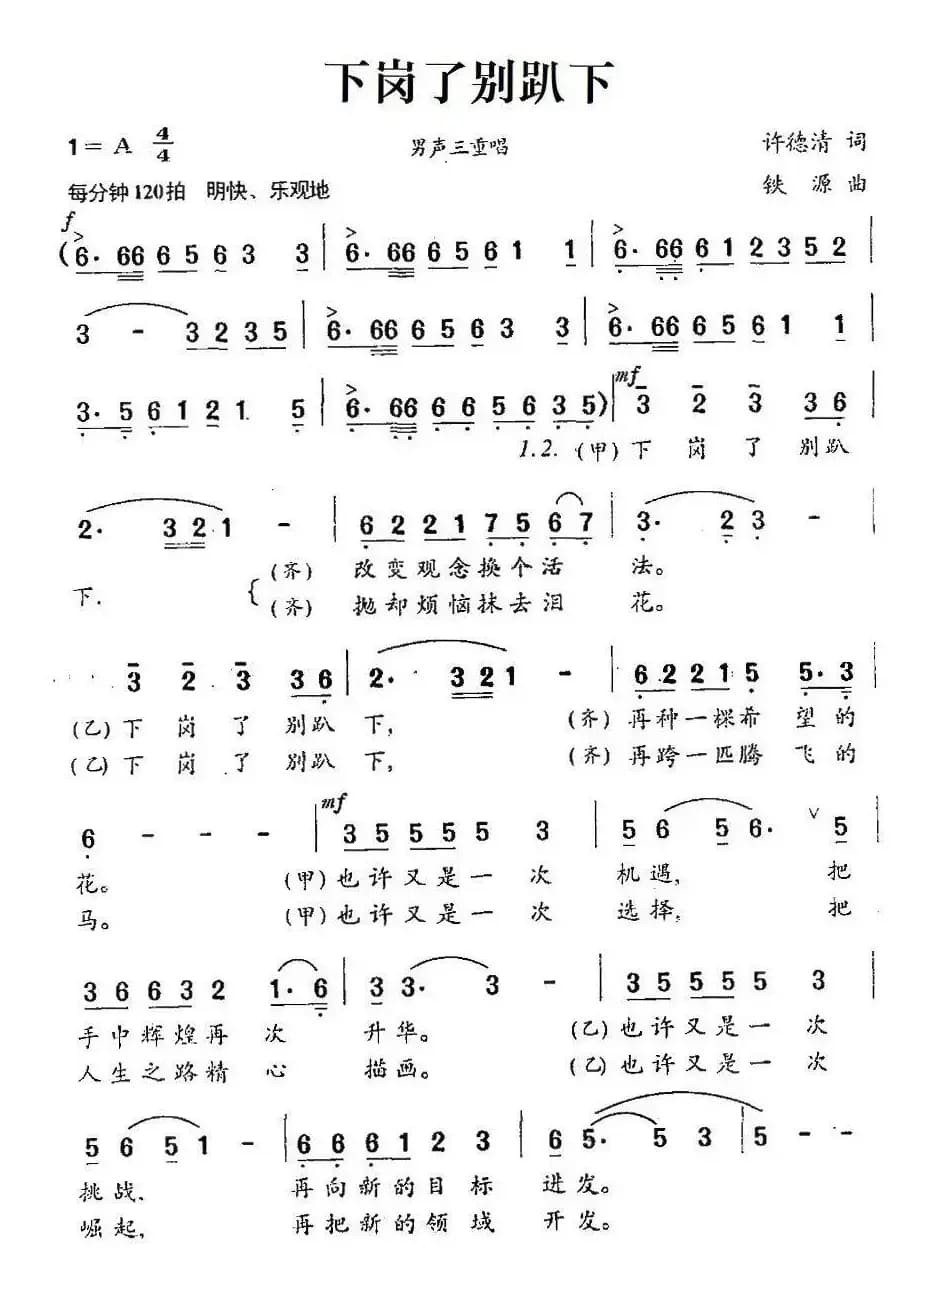 下岗了别趴下
1 = A 4/4 男声三重唱 许德清 词
每分钟120拍 明快、乐观地 铁 源 曲
f
(6· 66 6 5 6 3 3 | 6· 66 6 5 6 1 1 | 6· 66 6 1 2 3 5 2 |
3 - 3 2 3 5 | 6· 66 6 5 6 3 3 | 6· 66 6 5 6 1 1 |
mf
3· 5 6 1 2 1 5 | 6· 66 6 6 5 6 3 5) | 3 2 3 3 6 |
1.2. (甲)下 岗 了 别 趴
2· 3 2 1 - | 6 2 2 1 7 5 6 7 | 3· 2 3 - |
(齐) 改变观念换个活 法。
下.
(齐) 抛却烦恼抹去泪 花。
3 2 3 3 6 | 2· 3 2 1 - | 6 2 2 1 5 5· 3 |
(乙)下 岗 了 别趴 下, (齐)再种一棵希 望的
(乙)下 岗 了 别趴 下, (齐)再跨一匹腾 飞的
mf
6 - - - | 3 5 5 5 5 3 | 5 6 5 6· ∨ 5 |
花。 (甲)也许又是一 次 机遇, 把
马。 (甲)也许又是一 次 选择, 把
3 6 6 3 2 1· 6 | 3 3· 3 - | 3 5 5 5 5 3 |
手中辉煌再 次 升华。 (乙)也许又是一 次
人生之路精 心 描画。 (乙)也许又是一 次
5 6 5 1 - | 6 6 6 1 2 3 | 6 5· 5 3 | 5 - -
挑战, 再向新的目 标 进发。
崛起, 再把新的领 域 开发。